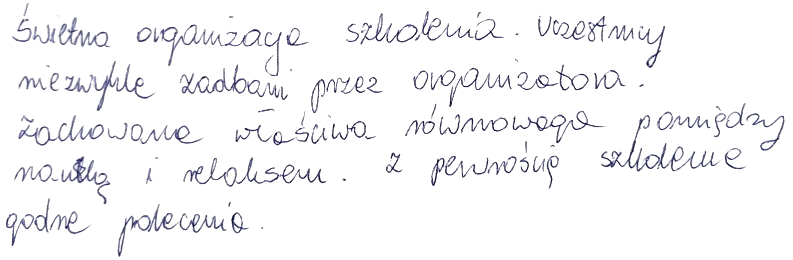 Świetna organizacja szkolenia. Uczestnicy
niezwykle zadbani przez organizatora.
Zachowana właściwa równowaga pomiędzy
nauką i relaksem. Z pewnością szkolenie
godne polecenia.